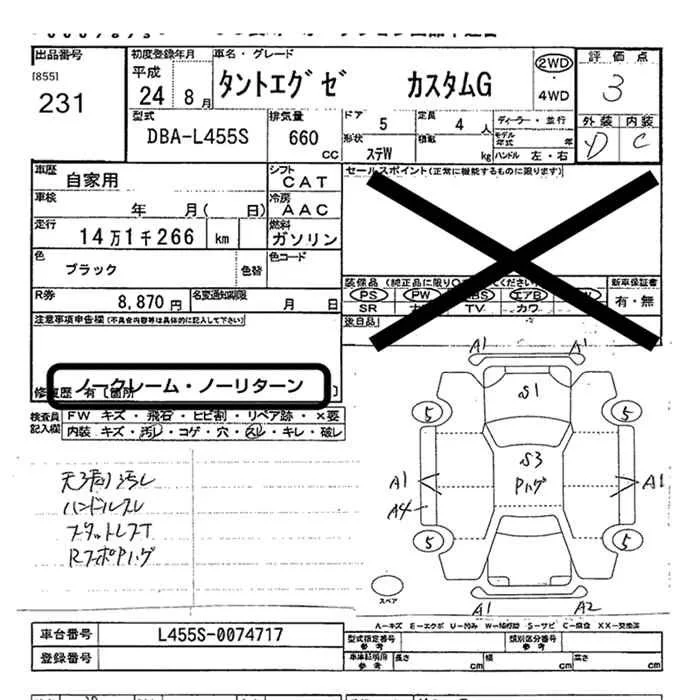 出品番号 初度登録年月 車名・グレード 2WD 評価点
[855] 平成 タントエグゼ カスタムG ・ 3
231 24年 8月 4WD
型式 排気量 ドア 5 定員 4人 ディーラー・並行 外装 内装
DBA-L455S 660cc 形状 ステW 積載 kg モデル年式 年 D C
ハンドル 左・右
車歴 自家用 シフト CAT セールスポイント(正常に機能するものに限ります)
車検 年 月( 日) 冷房 AAC
走行 14万1千266 km 燃料 ガソリン
色 ブラック 色替 色コード
装備品 新車保証書
R券 8,870円 名変通知期限 月 日 PS PW エアB 有・無
SR TV カワ
注意事項申告欄(不具合内容等は具体的に記入して下さい) 後日品
ノークレーム・ノーリターン
修復歴 有 [箇所 ]
検査員 FW キズ・飛石・ヒビ割・リペア跡・×要
記入欄 内装 キズ・汚レ・コゲ・穴・スレ・キレ・破レ
A1 A1
S1
5 5
S3
Pハゲ
A1 A1
A4
5 5
スペア
A1 A2
ハンドルスレ
A-キズ E-エクボ U-凹ミ W-補修跡 S-サビ C-腐食 XX-交換済
車台番号 L455S-0074717 型式指定番号 参考 類別区分番号 参考
登録番号 車車証明用 参考 長さ cm 幅 cm 高さ cm